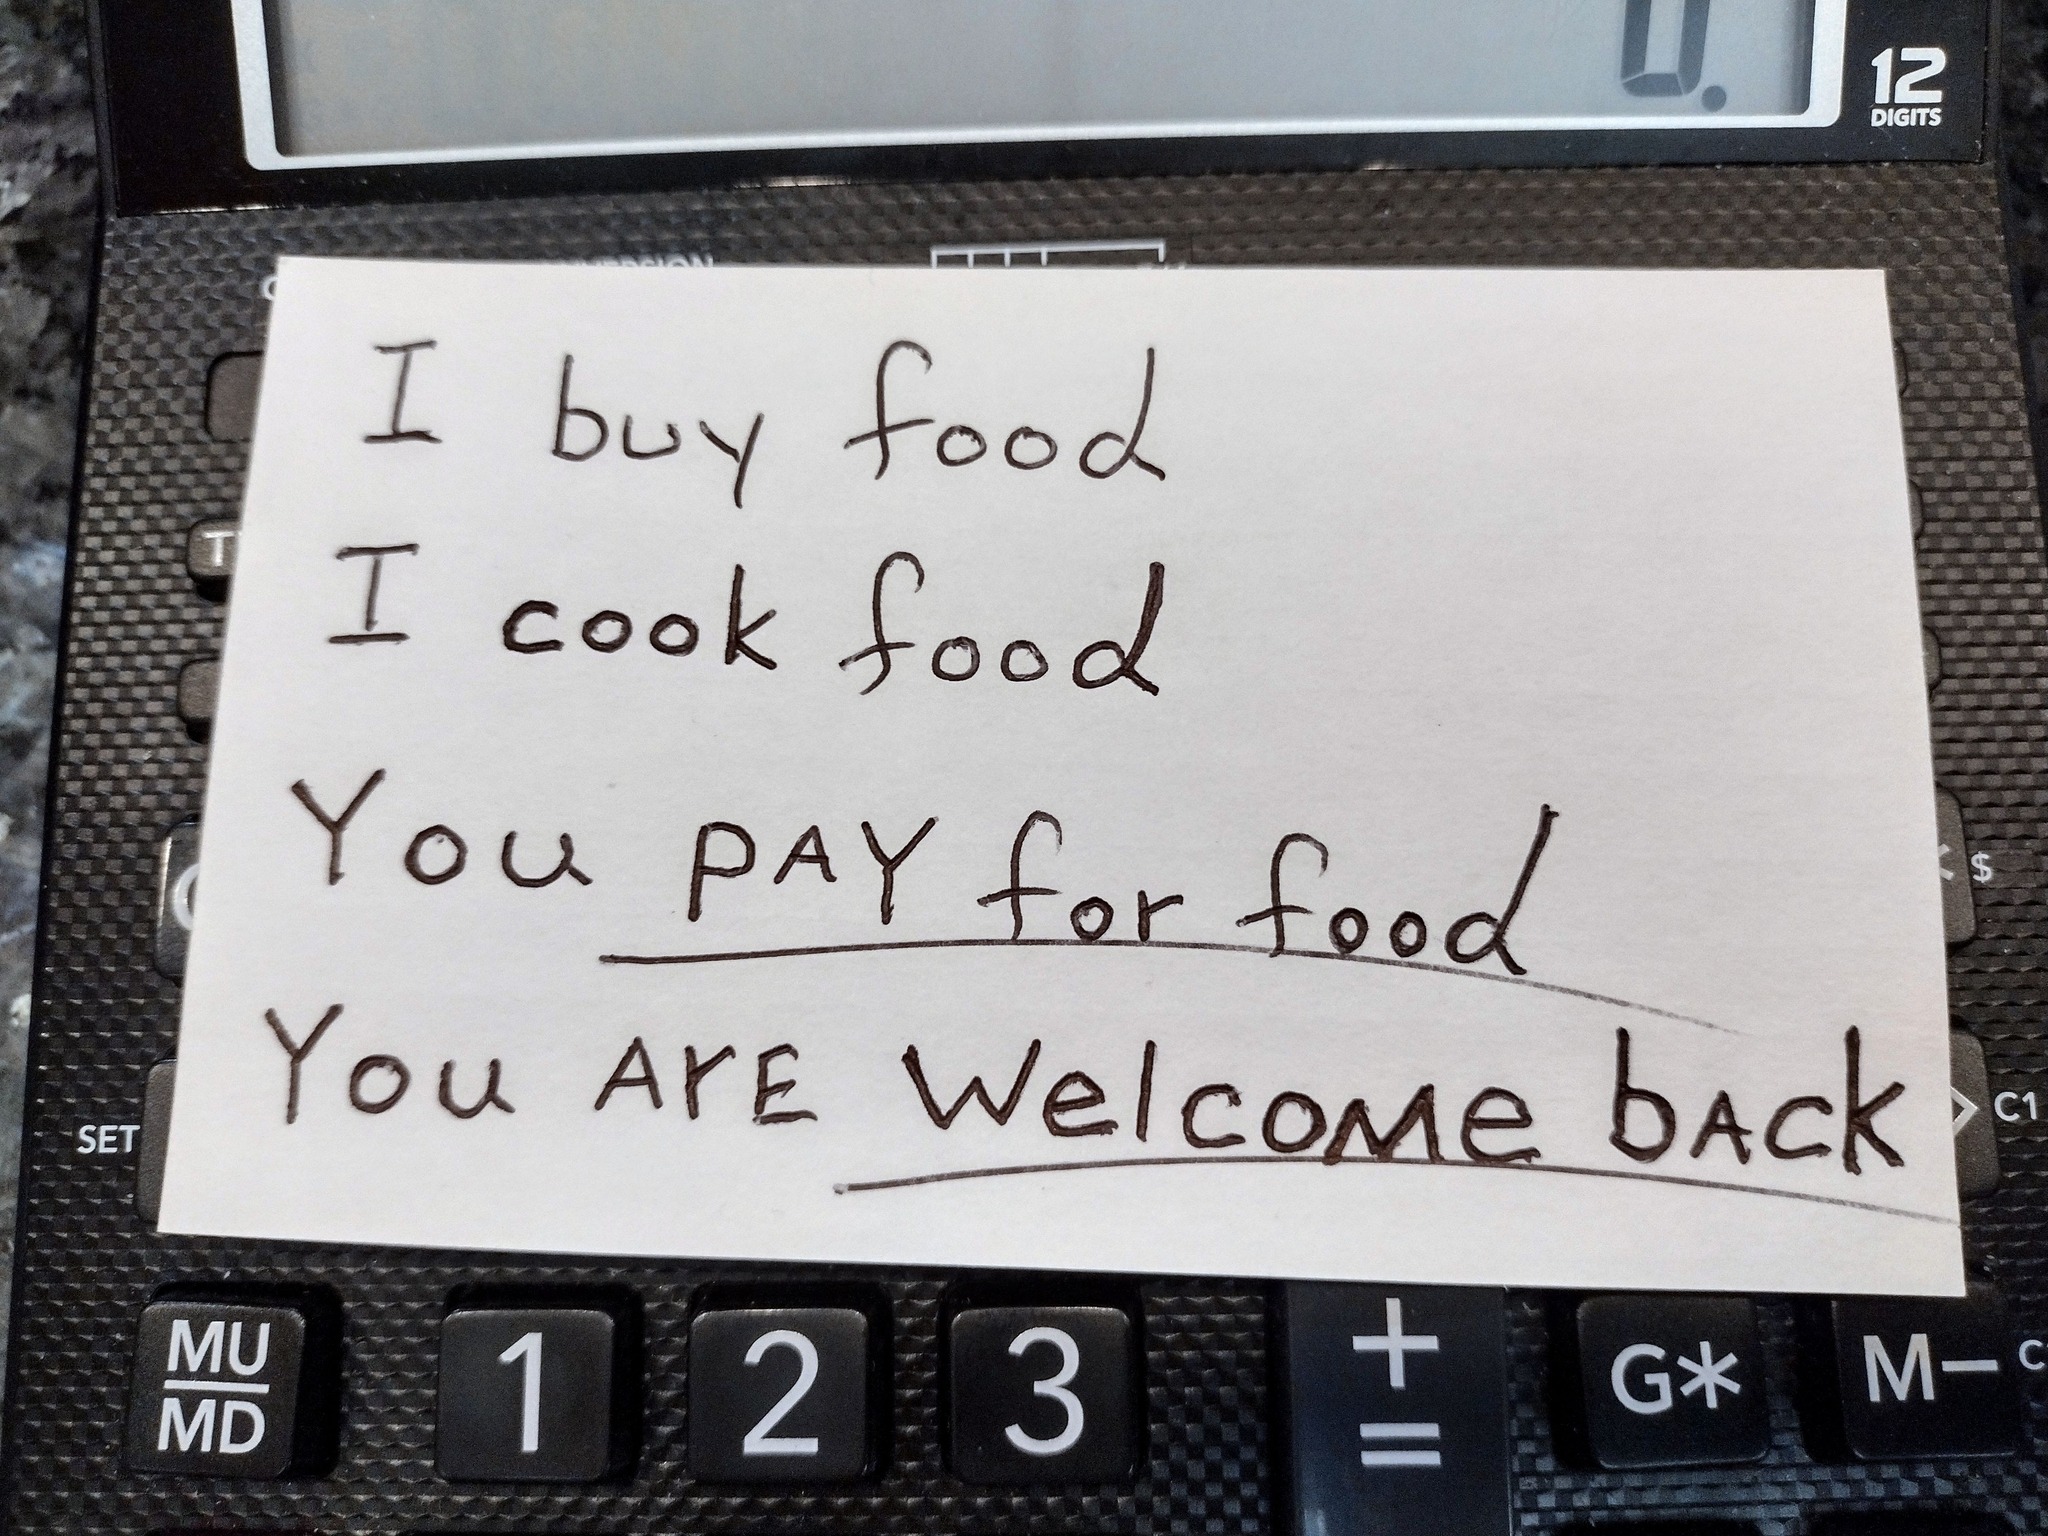 0.
12
DIGITS
I buy food
I cook food
You PAY for food
$
You ArE Welcome bACk
SET
C1
MU
MD
1
2
3
+
=
G*
M–